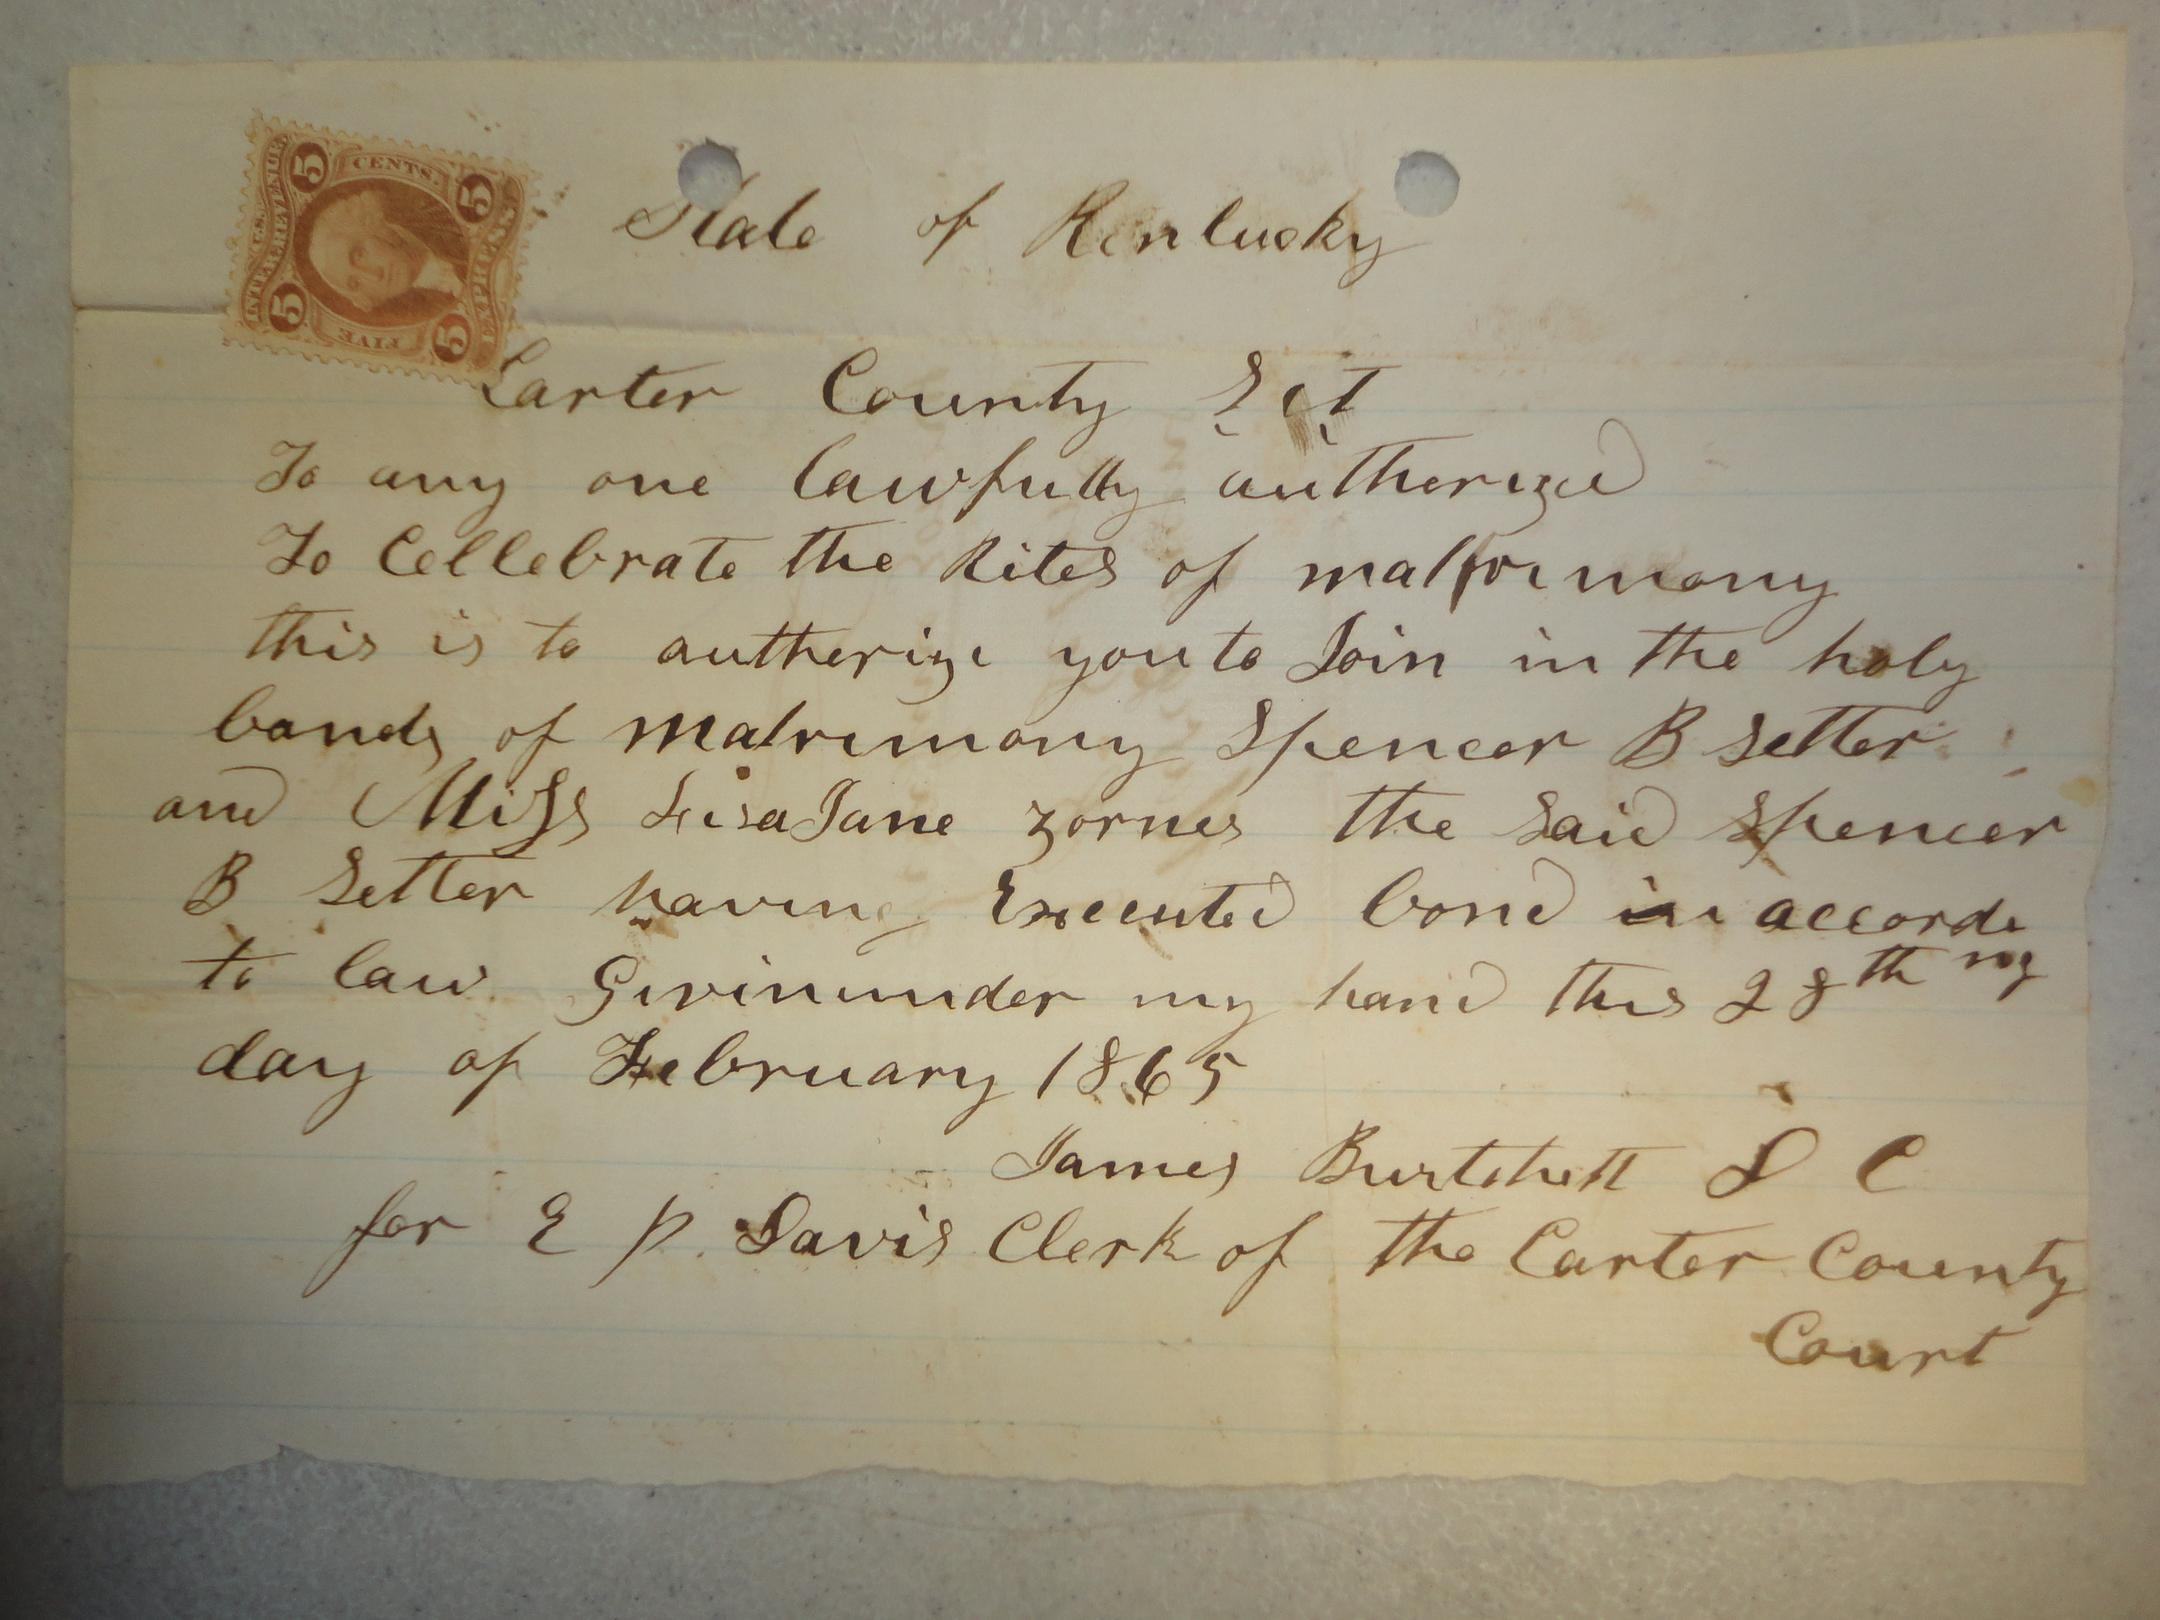 U.S. INTER. REVENUE
5 CENTS. 5
EXPRESS
5 FIVE 5
State of Kentucky
Carter County Sct
To any one lawfully autherized
To Cellebrate the Rites of matrimony
this is to autherize you to Join in the holy
bonds of matrimony Spencer B Setter
and Miss Lisa Jane Zornes the Said Spencer
B Setter having Executed bond in accordi
to law Givin under my hand this 28th ng
day of February 1865
James Burtchett D C
for E P. Davis Clerk of the Carter County
Court